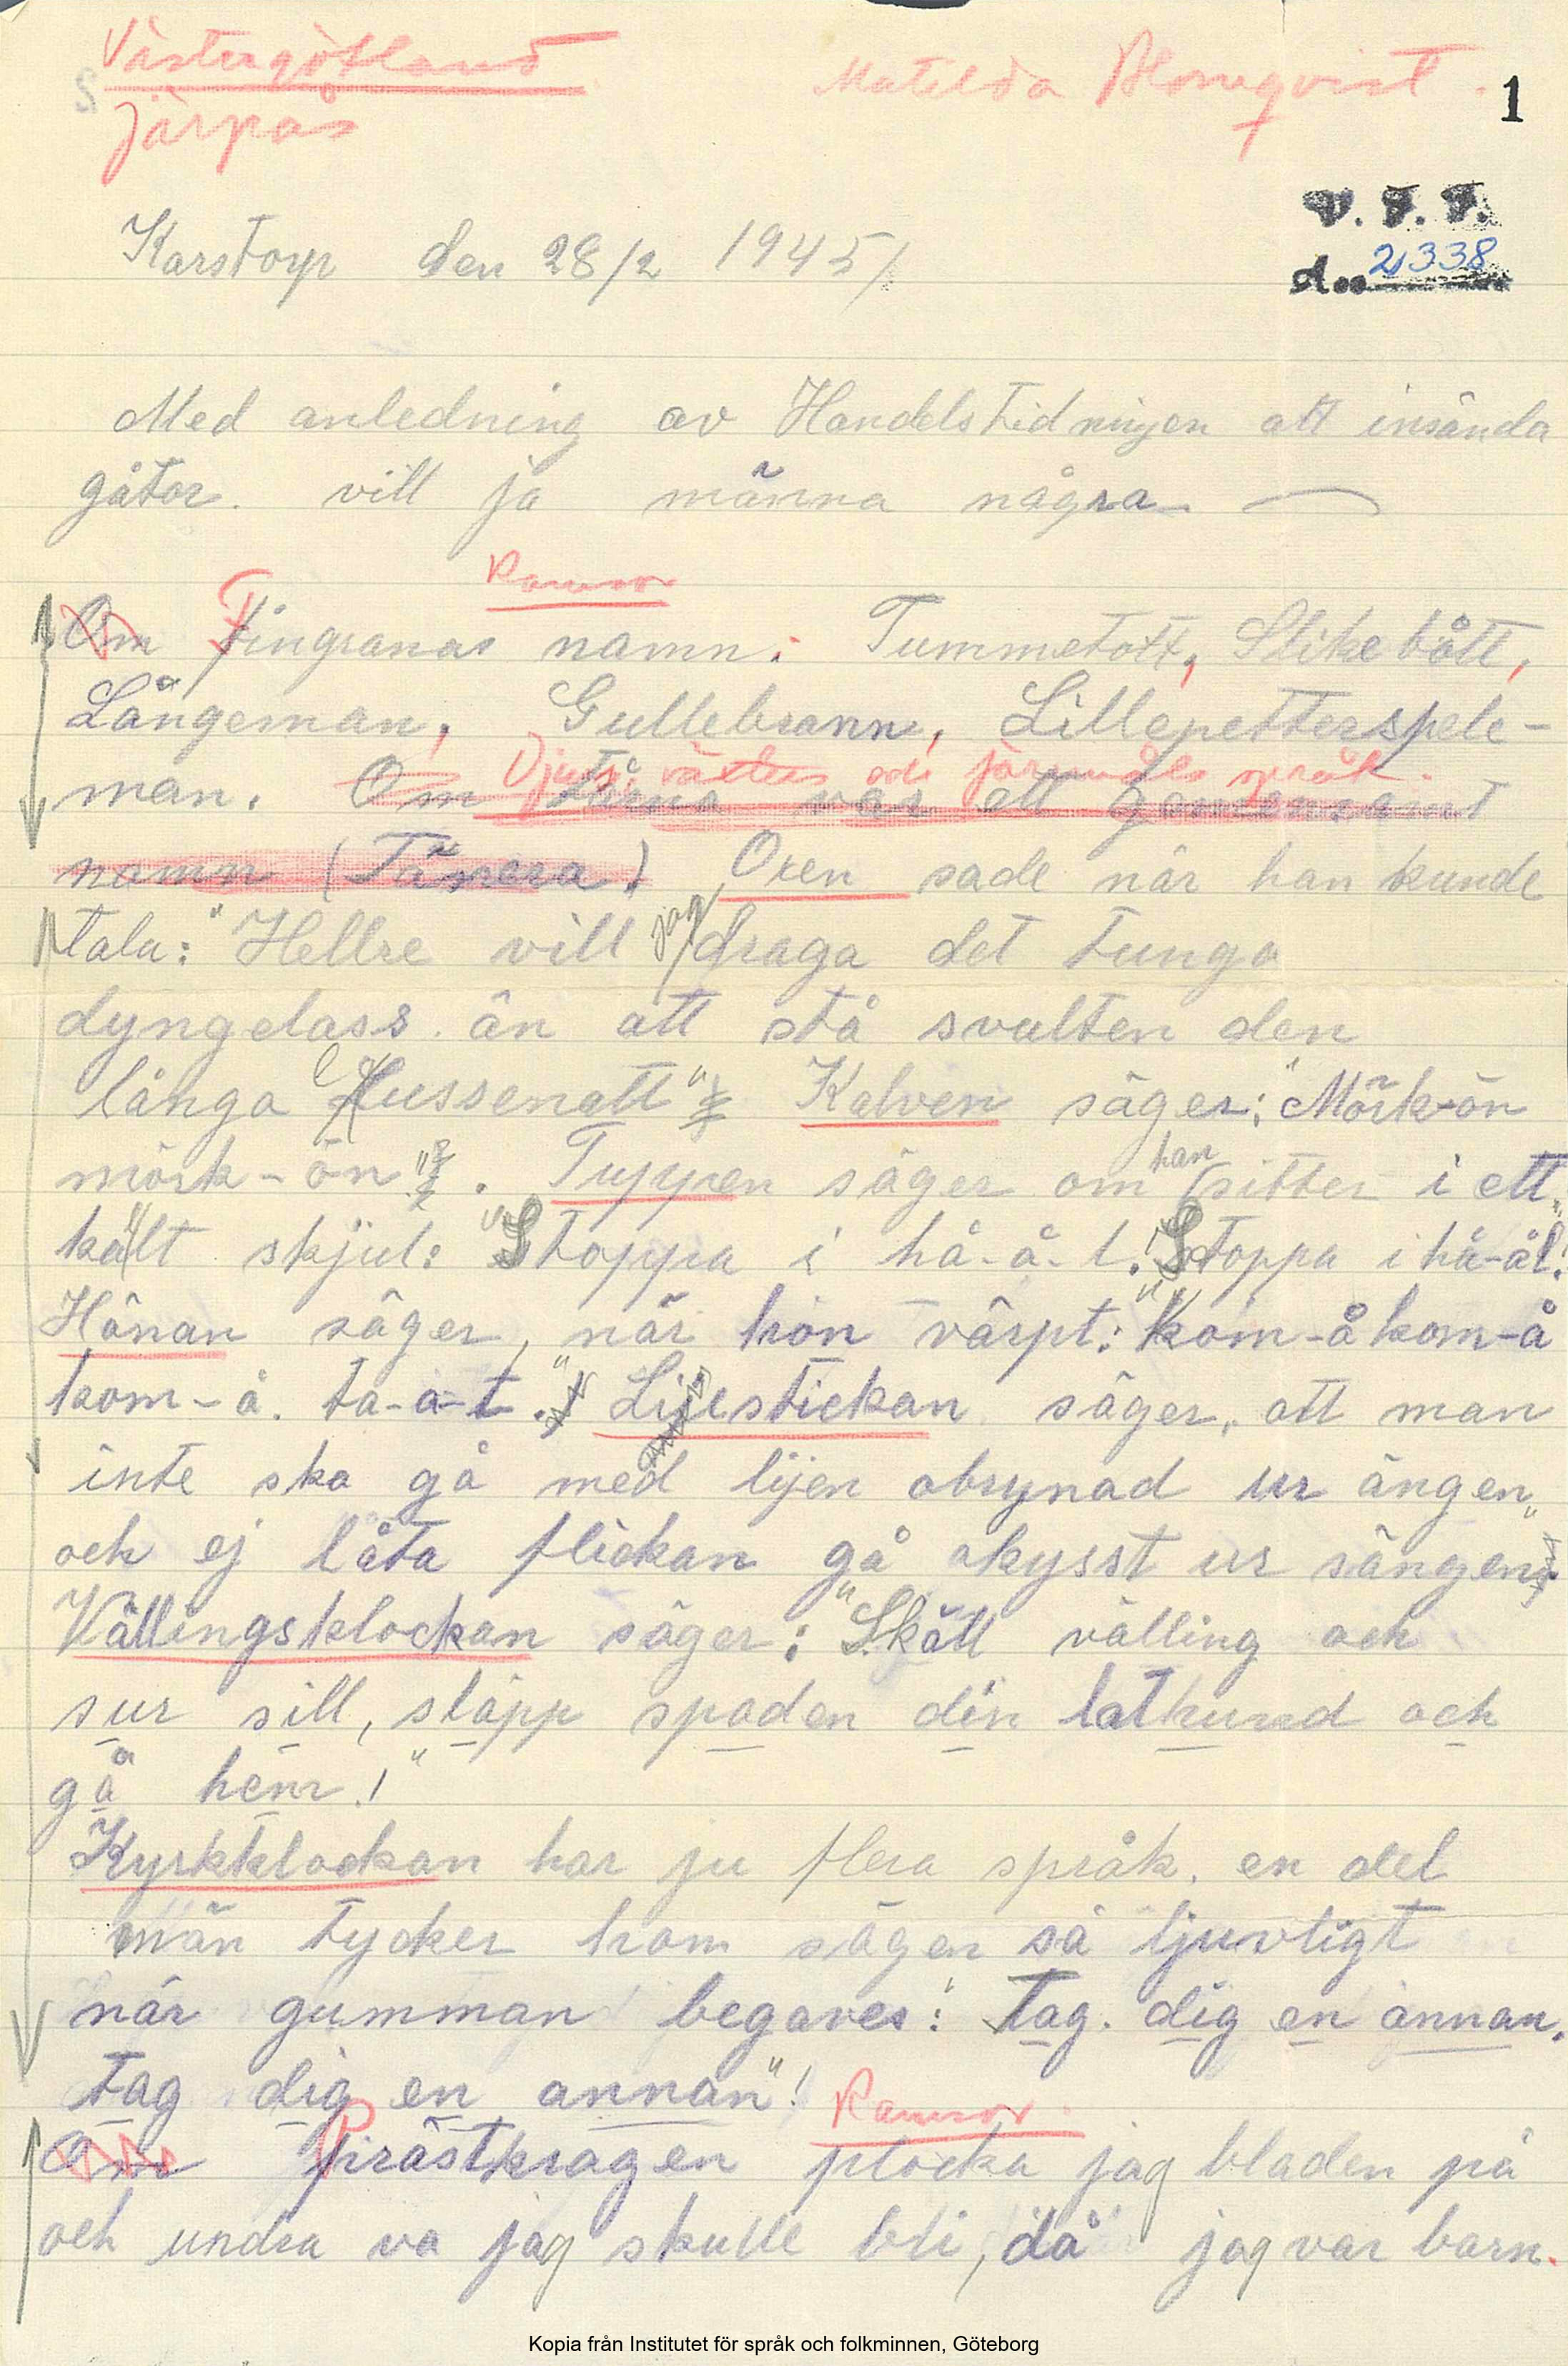 Västergötland
Järpås
Matilda Blomqvist.
1
V. F. F.
d.. 2338
Karstorp den 28/2 1945/
Med anledning av Handelstidningen att insända
gåtor. vill ja männa några
Ramsor
Om Fingranas namn: Tummetott, Slikebått,
Långeman, Gullebrann, Lillepetterspele-
Djurs, växters och föremåls språk.
man. Om tårna var ett gemensamt
namn (Tänera) Oxen sade när han kunde
tala: "Hellre vill jag draga det tunga
dyngelass. än att stå svulten den
långa lussenatt" Kalven säger: "Mörk-ön
mörk-ön". Tuppen säger om han sitter i ett
kallt skjul: "Stoppa i hå-å-l! Stoppa i hå-ål!"
Hönan säger, när hon värpt: "kom-å kom-å
kom-å. ta-a-t." Liestickan säger, att man
inte ska gå med lijen obrynad ur ängen
och ej låta flickan gå okysst ur sängen".
Vällingsklockan säger: "Skåll välling och
sur sill, släpp spaden din lathund och
gå hem!"
Kyrkklockan har ju flera språk. en del
män tycker hom sägen så ljuvligt
när gumman begaves: "Tag. dig en annan.
tag dig en annan"!
Ramsor.
Om Prästkragen plocka jag bladen på
och undra va jag skulle bli, då jag var barn.
Kopia från Institutet för språk och folkminnen, Göteborg